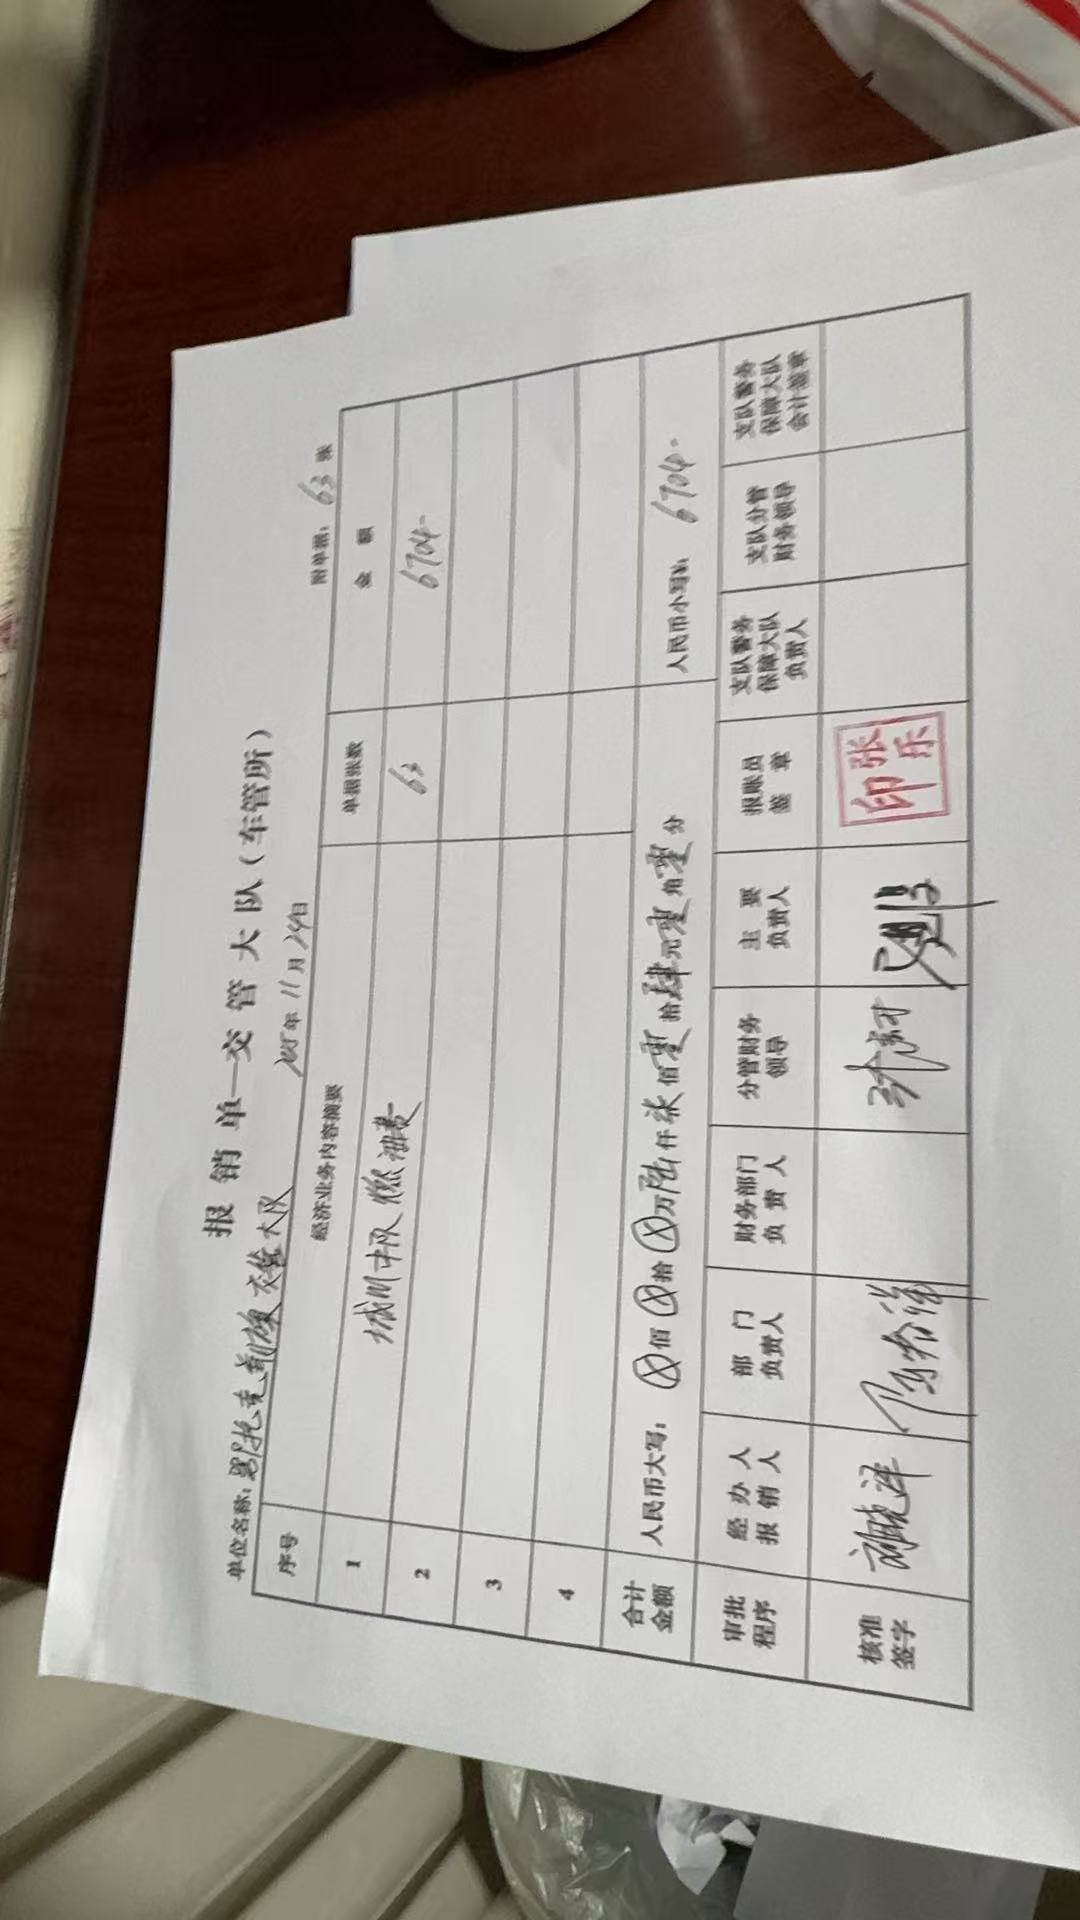 报销单—交管大队（车管所）
单位名称：鄂托克前旗交管大队 2025年11月24日 附单据：63张
序号 经济业务内容摘要 单据张数 金额
1 城川中队燃油费 63 6704-
2
3
4
合计金额 人民币大写：ⓧ佰ⓧ拾ⓧ万陆仟柒佰零拾肆元零角零分 人民币小写¥：6704-
审批程序 经办人报销人 部门负责人 财务部门负责人 分管财务领导 主要负责人 报账员签章 支队警务保障大队负责人 支队分管财务领导 支队警务保障大队会计签章
核准签字 张乐印